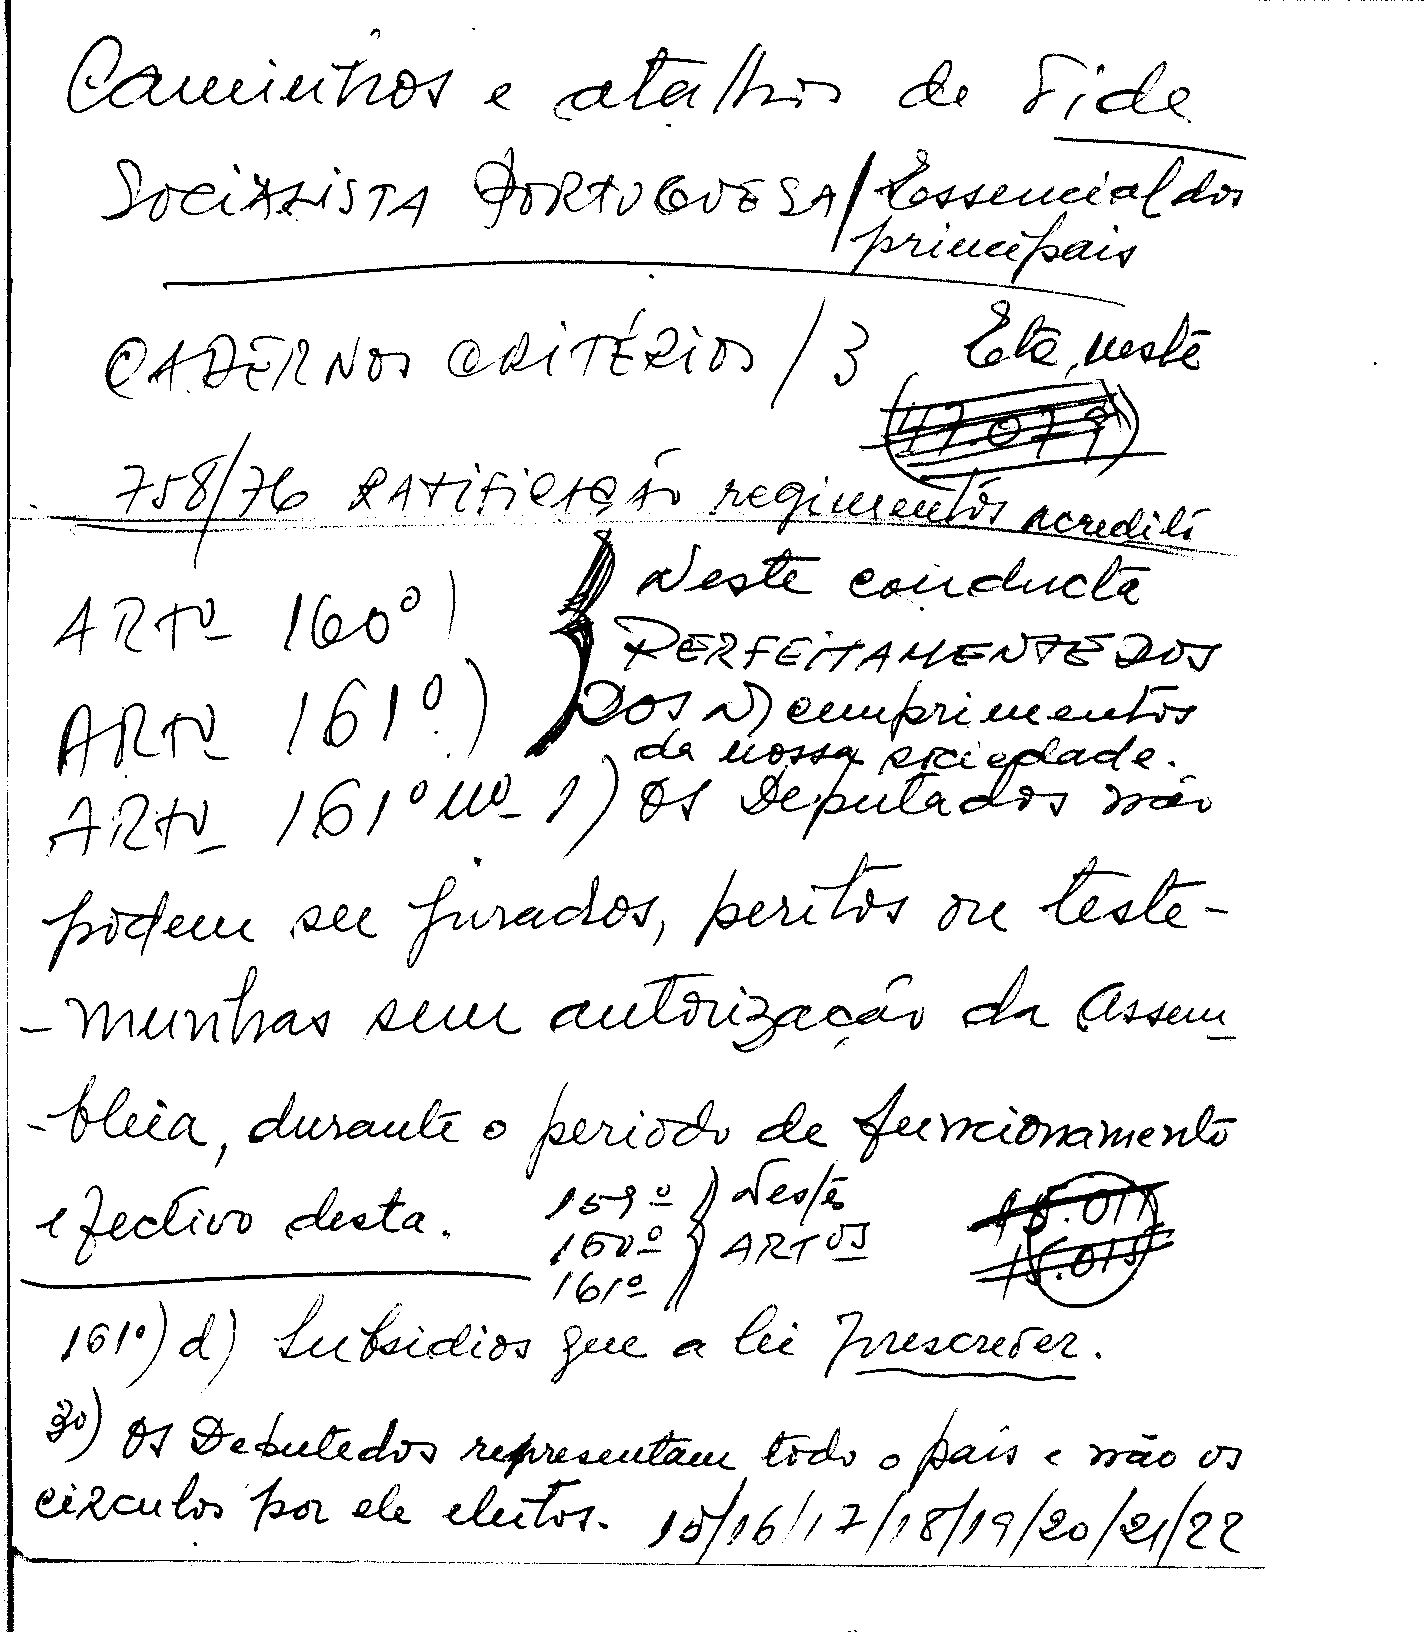 Caminhos e atalhos de Vida
SOCIALISTA PORTUGUESA / Essencial dos
principais
CADERNOS CRITÉRIOS / 3 Etc, neste
(47.079)
758/76 RATIFICAÇÃO regimentos acredito
ARTº 160º) Neste conducta
PERFEITAMENTE DOS
ARTº 161º.) DOS N) cumprimentos
da nossa sociedade.
ARTº 161º nº 1) OS Deputados não
podem ser jurados, peritos ou teste-
-munhas sem autorização da Assem-
-bleia, durante o periodo de funcionamento
efectivo desta. 159º ) Nestes
160º } ARTOS
161º
15.011
15.015
161º) d) Subsidios que a lei prescrever.
3º) OS Deputados representam todo o pais e não os
circulos por ele eleitos. 15/16/17/18/19/20/21/22